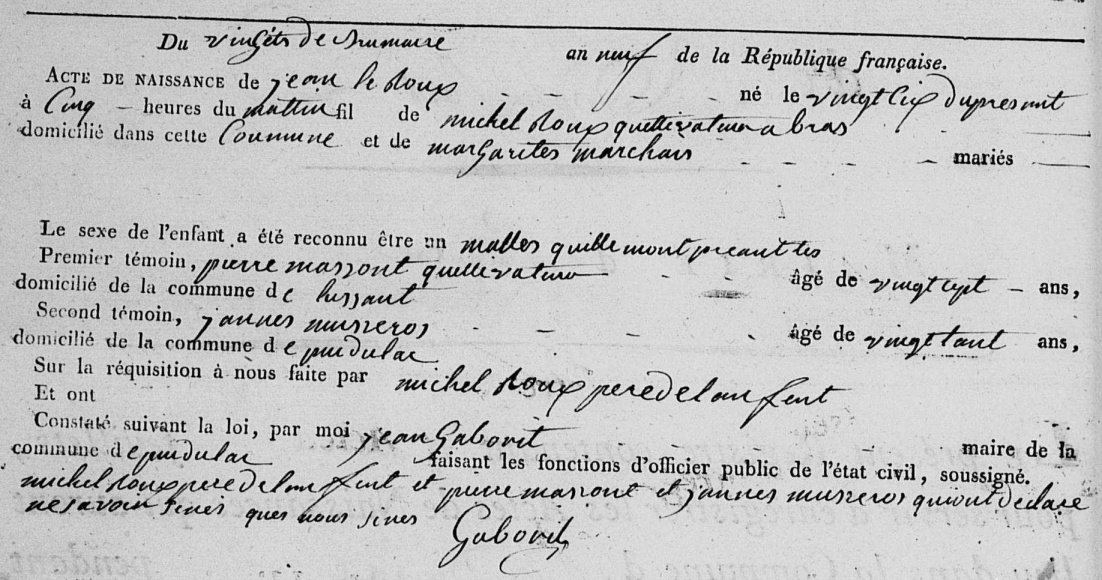 Du vingt de brumaire an neuf de la République française.
ACTE DE NAISSANCE de jean le Roux né le vingt cix du presant
à Cinq heures du mattin fil de michel Roux quettivateur a bras
domicilié dans cette Coumune et de margarites marchais mariés
Le sexe de l'enfant a été reconnu être un malles quille mont preantte
Premier témoin, pierre massont quellivateur âgé de vingt cept ans,
domicilié de la commune de lussant
Second témoin, jannes musseros âgé de vingt ans,
domicilié de la commune de puidulac
Sur la réquisition à nous faite par michel Roux pere de lanfent
Et ont
Constaté suivant la loi, par moi jean Gaborit maire de la
commune de puidulac faisant les fonctions d'officier public de l'état civil, soussigné.
michel Roux pere de lanfent et pierre massont et jannes musseros qui ont declare
ne savoir sines ques nous sines
Gaborit